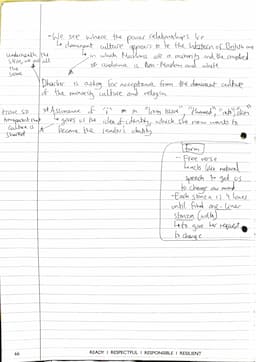 -We see where the power relationships lie
↳ dominant culture appears to be the Western or British one
↳ in which Muslims are a minority and the implied
audience is Non-Muslim and white
underneath the
we are all
the
same
Dharker is asking for acceptance from the dominant culture
of the minority culture and religion
*Assonance of "i" in
↳ gives us the idea of identity, which she now wants to
become the reader's identity
culture is
shared
Form
- Free verse
↳ acts like natural
speech to get us
to change our mind
-Each stanza is 4 lines
until final one-liner
stanza
↳ to give her request
to change
66
READY | RESPECTFUL | RESPONSIBLE | RESILIENT